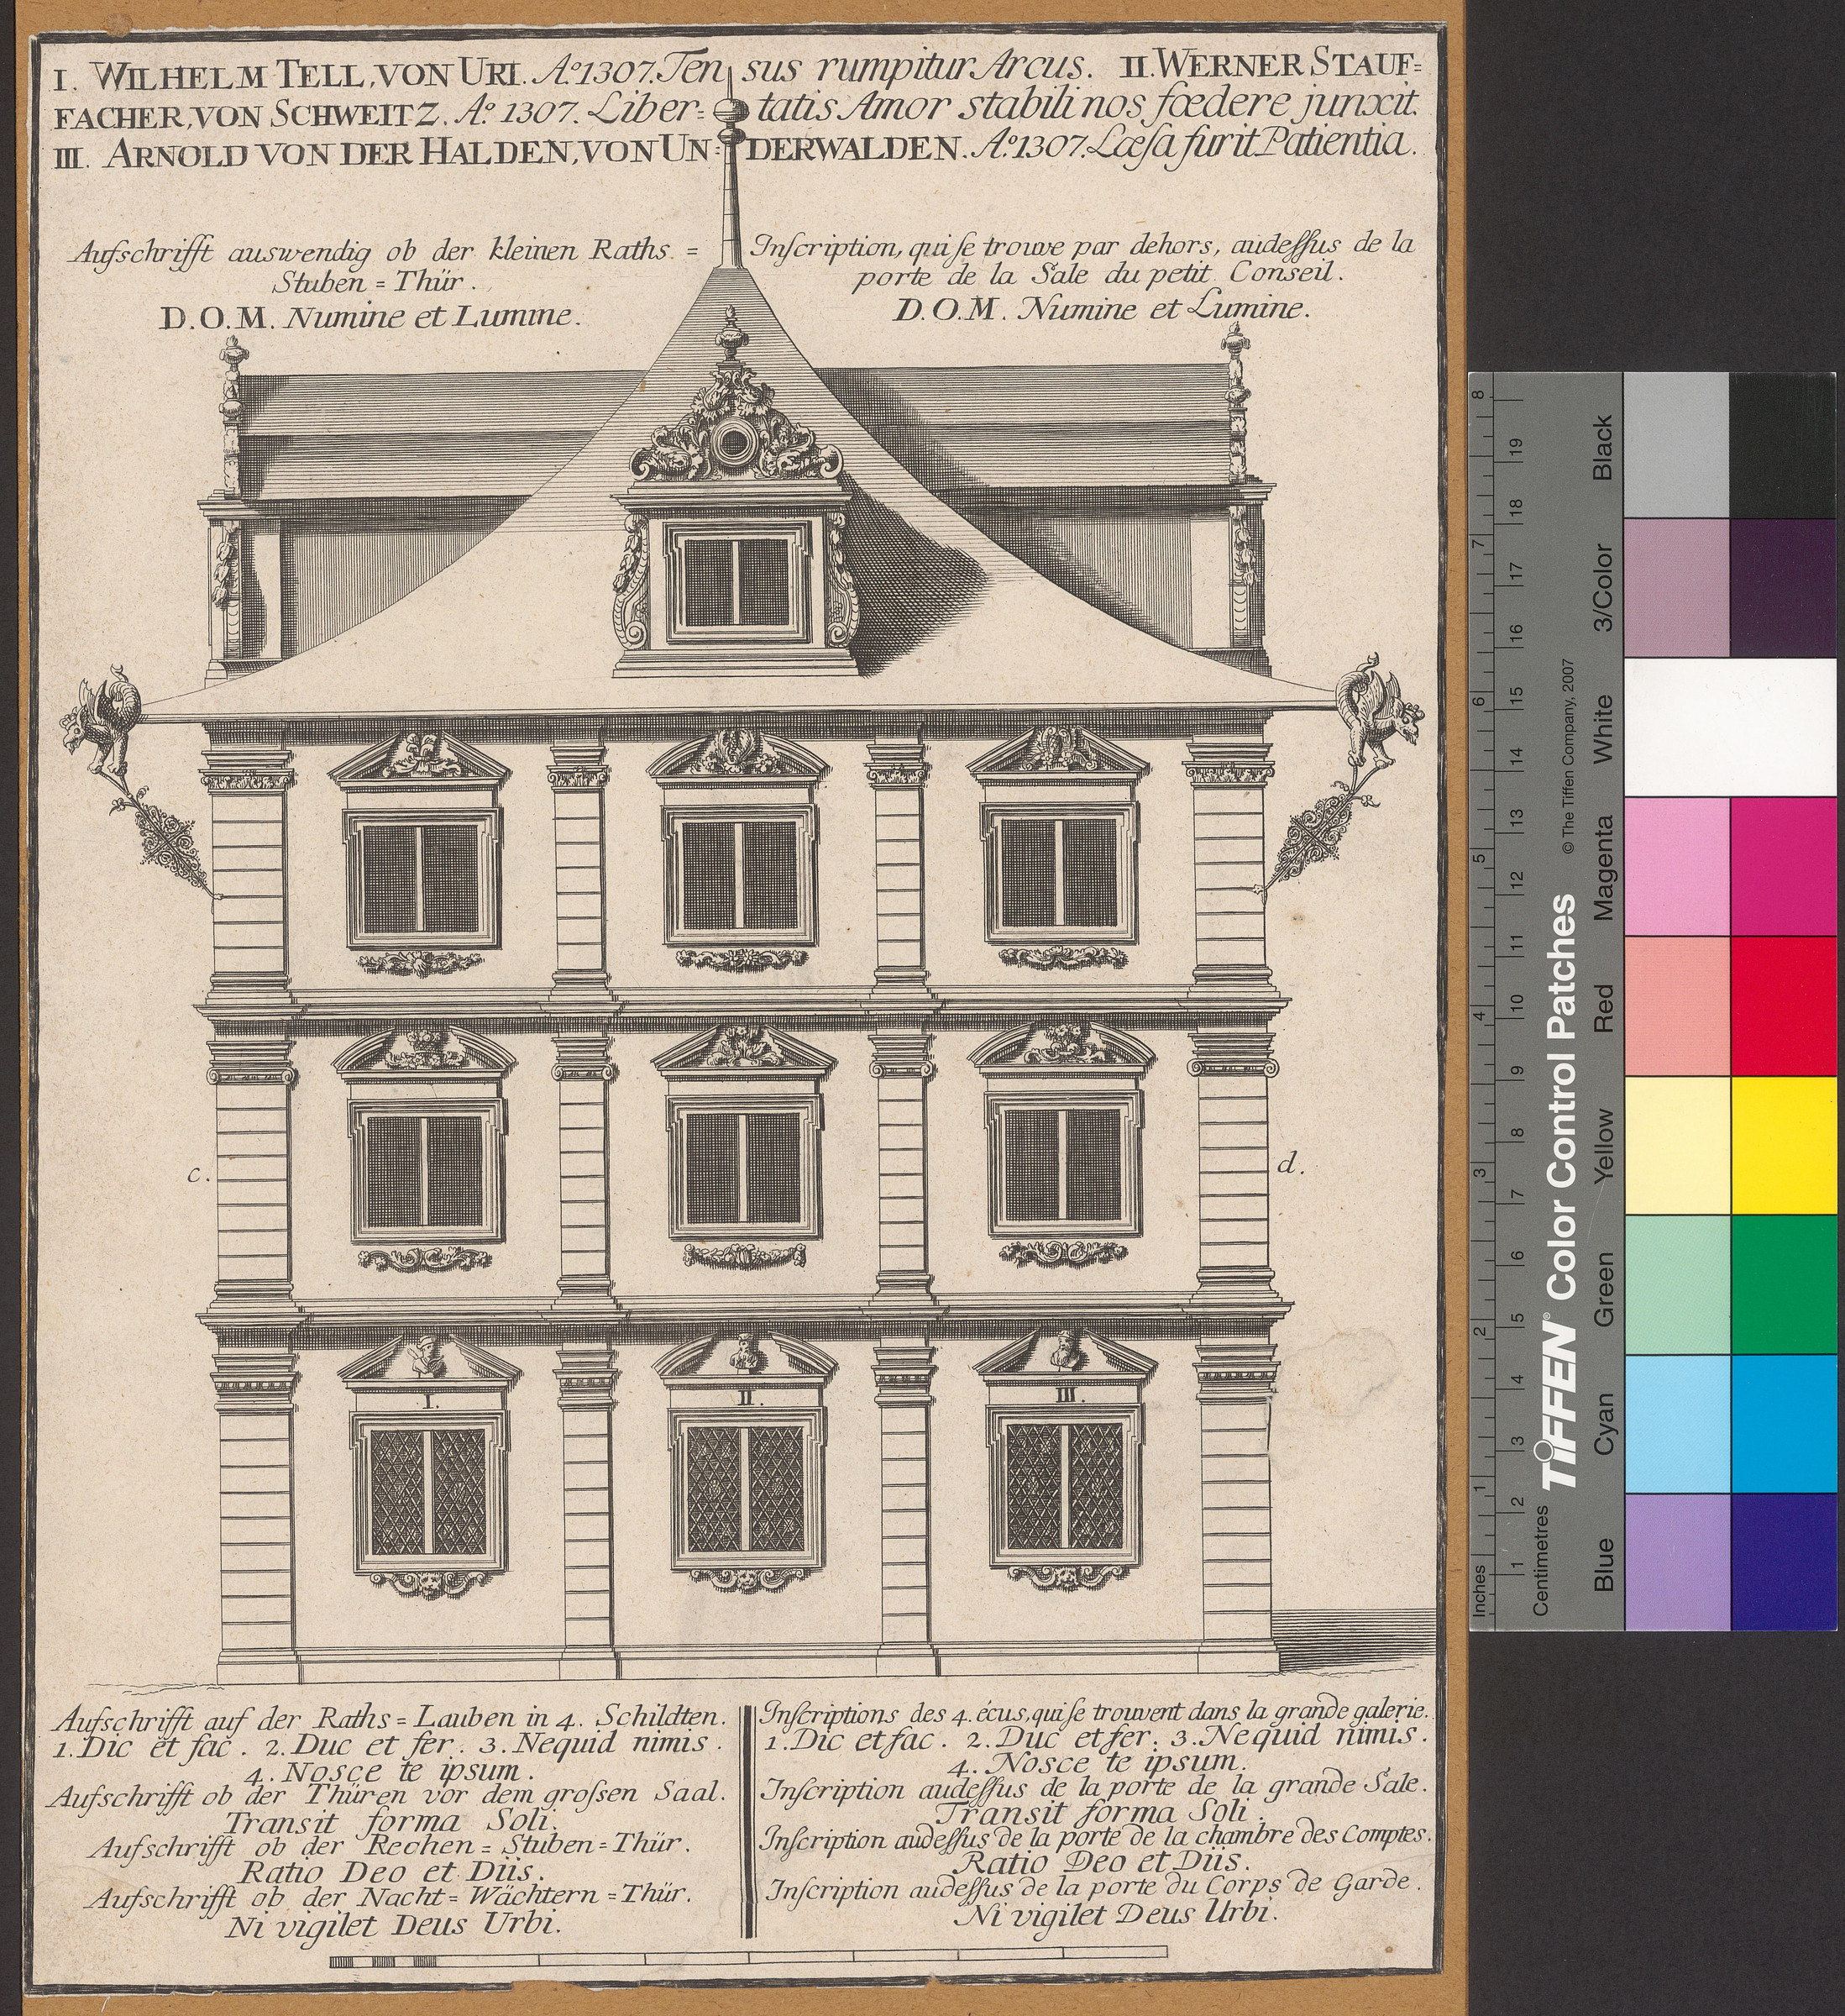 I. WILHELM TELL, VON URI. Aº1307. Tensus rumpitur Arcus. II. WERNER STAUF=
FACHER, VON SCHWEITZ. Aº. 1307. Liber=tatis Amor stabili nos fœdere junxit.
III. ARNOLD VON DER HALDEN, VON UN=DERWALDEN. Aº.1307. Læſa furit Patientia.
Aufschrifft auswendig ob der kleinen Raths =
Stuben = Thür.
D.O.M. Numine et Lumine.
Inſcription, qui ſe trouve par dehors, audeſſus de la
porte de la Sale du petit Conseil.
D.O.M. Numine et Lumine.
c.
d.
I.
II.
III.
Aufschrifft auf der Raths = Lauben in 4. Schildten.
1. Dic et fac. 2. Duc et fer. 3. Nequid nimis.
4. Nosce te ipsum.
Aufschrifft ob der Thüren vor dem groſsen Saal.
Transit forma Soli.
Aufschrifft ob der Rechen = Stuben = Thür.
Ratio Deo et Diis.
Aufschrifft ob der Nacht = Wächtern = Thür.
Ni vigilet Deus Urbi.
Inſcriptions des 4. écus, qui ſe trouvent dans la grande galerie.
1. Dic et fac. 2. Duc et fer. 3. Nequid nimis.
4. Nosce te ipsum.
Inſcription audeſſus de la porte de la grande Sale.
Transit forma Soli.
Inſcription audeſſus de la porte de la chambre des Comptes.
Ratio Deo et Diis.
Inſcription audeſſus de la porte du Corps de Garde.
Ni vigilet Deus Urbi.
Inches 1 2 3 4 5 6 7 8
Centimetres 1 2 3 4 5 6 7 8 9 10 11 12 13 14 15 16 17 18 19
TIFFEN® Color Control Patches © The Tiffen Company, 2007
Blue Cyan Green Yellow Red Magenta White 3/Color Black